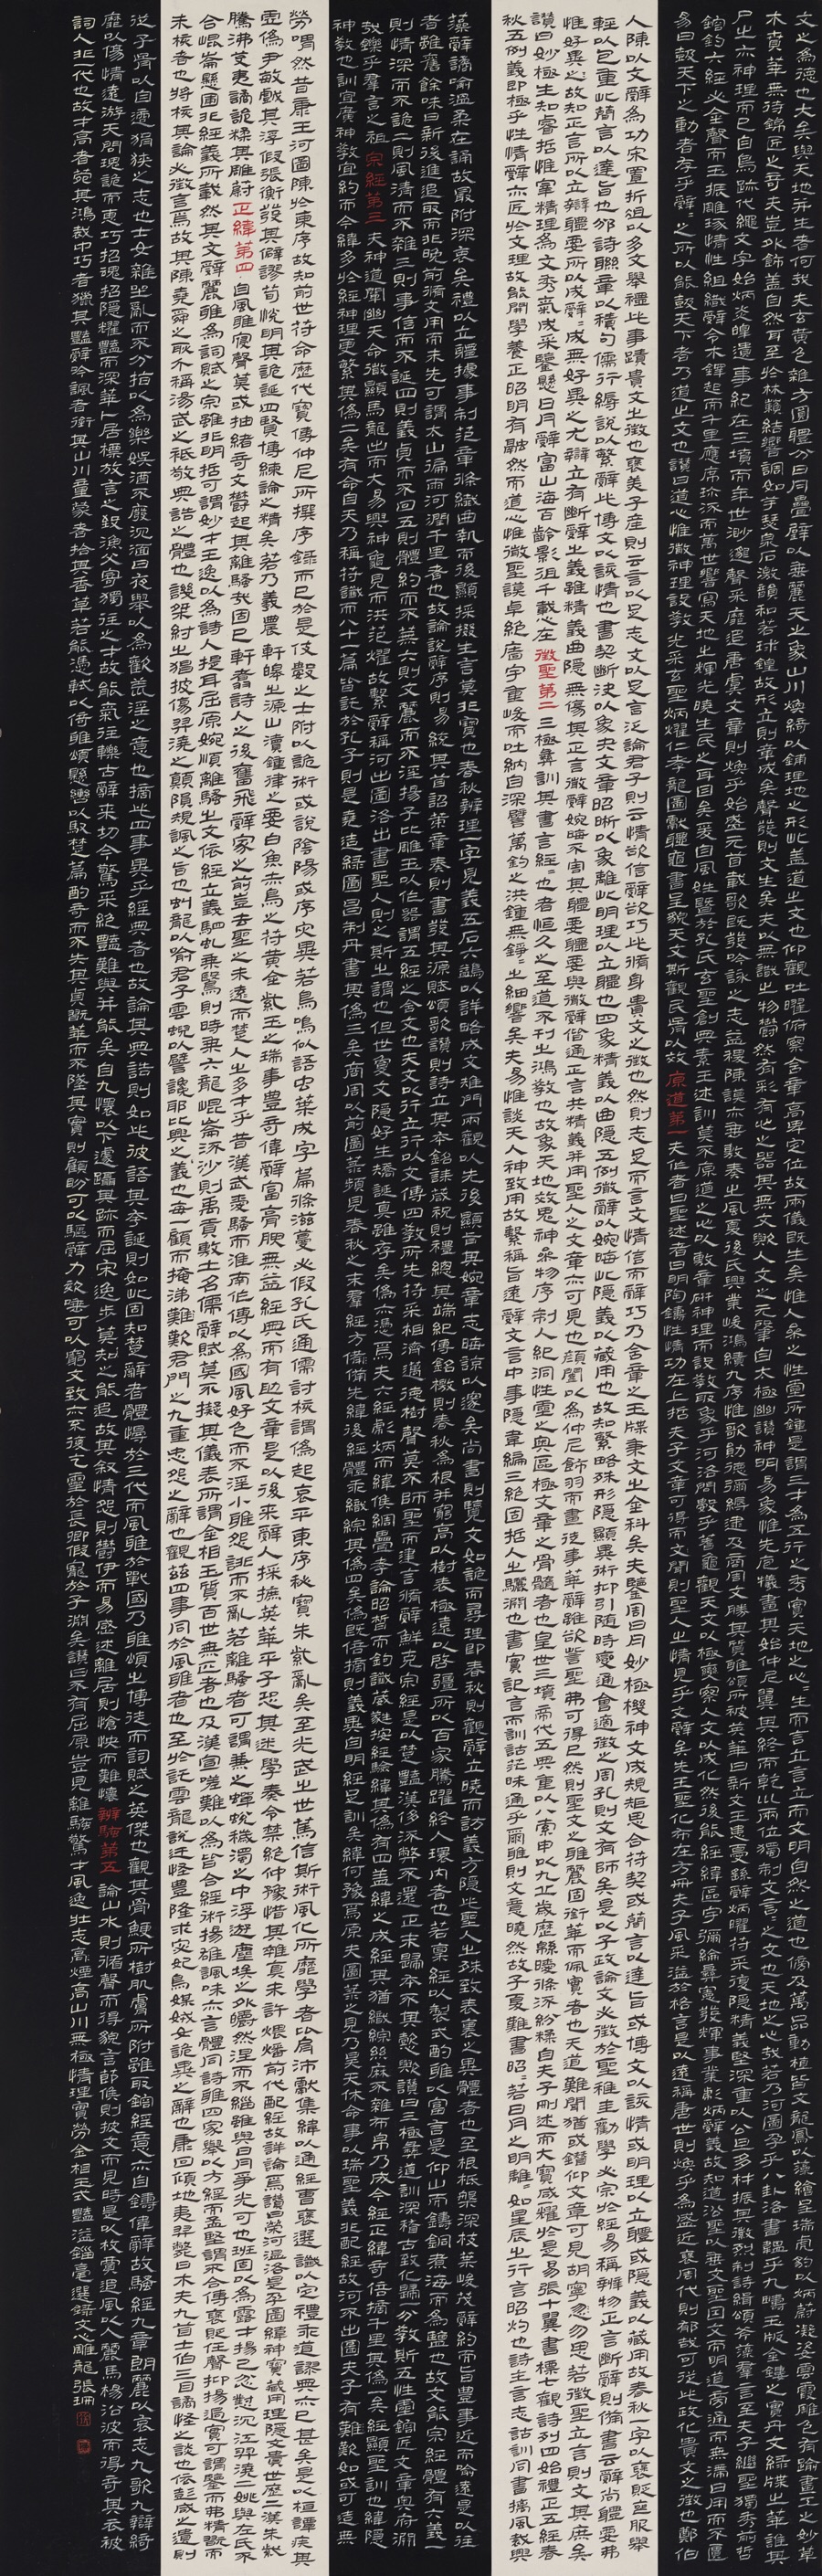 文之為德也大矣與天地并生者何哉夫玄黃色雜方圓體分日月疊璧以垂麗天之象山川煥綺以鋪理地之形此蓋道之文也仰觀吐曜俯察含章高卑定位故兩儀既生矣惟人參之性靈所鍾是謂三才為五行之秀實天地之心心生而言立言立而文明自然之道也傍及萬品動植皆文龍鳳以藻繪呈瑞虎豹以炳蔚凝姿雲霞雕色有踰畫工之妙草
木賁華無待錦匠之奇夫豈外飾蓋自然耳至於林籟結響調如竽瑟泉石激韻和若球鍠故形立則章成矣聲發則文生矣夫以無識之物鬱然有彩有心之器其無文歟人文之元肇自太極幽讚神明易象惟先庖犧畫其始仲尼翼其終而乾坤兩位獨制文言言之文也天地之心哉若乃河圖孕乎八卦洛書韞乎九疇玉版金鏤之實丹文綠牒之華誰其
尸之亦神理而已自鳥跡代繩文字始炳炎皥遺事紀在三墳而年世渺邈聲采靡追唐虞文章則煥乎始盛元首載歌既發吟詠之志益稷陳謨亦垂敷奏之風夏後氏興業峻鴻績九序惟歌勛德彌縟逮及商周文勝其質雅頌所被英華日新文王患憂繇辭炳曜符采復隱精義堅深重以公旦多材振其徽烈制詩緝頌斧藻羣言至夫子繼聖獨秀前哲
鎔鈞六經必金聲而玉振雕琢情性組織辭令木鐸起而千里應席珍流而萬世響寫天地之輝光曉生民之耳目矣爰自風姓暨於孔氏玄聖創典素王述訓莫不原道心以敷章研神理而設教取象乎河洛問數乎蓍龜觀天文以極變察人文以成化然後能經緯區宇彌綸彝憲發輝事業彪炳辭義故知道沿聖以垂文聖因文而明道旁通而無滯日用而不匱
易曰鼓天下之動者存乎辭辭之所以能鼓天下者乃道之文也讚曰道心惟微神理設教光采玄聖炳耀仁孝龍圖獻體龜書呈貌天文斯觀民胥以效 原道第一 夫作者曰聖述者曰明陶鑄性情功在上哲夫子文章可得而聞則聖人之情見乎文辭矣先王聖化布在方冊夫子風采溢於格言是以遠稱唐世則煥乎為盛近褒周代則郁哉可從此政化貴文之徵也鄭伯
入陳以文辭為功宋置折俎以多文舉禮此事蹟貴文之徵也褒美子產則云言以足志文以足言泛論君子則云情欲信辭欲巧此修身貴文之徵也然則志足而言文情信而辭巧乃含章之玉牒秉文之金科矣夫鑒周日月妙極機神文成規矩思合符契或簡言以達旨或博文以該情或明理以立體或隱義以藏用故春秋一字以褒貶喪服舉
輕以包重此簡言以達旨也邠詩聯章以積句儒行縟說以繁辭此博文以該情也書契斷決以象夬文章昭晰以象離此明理以立體也四象精義以曲隱五例微辭以婉晦此隱義以藏用也故知繁略殊形隱顯異術抑引隨時變通會適徵之周孔則文有師矣是以子政論文必徵於聖稚圭勸學必宗於經易稱辨物正言斷辭則備書云辭尚體要弗
惟好異之故知正言所以立辯體要所以成辭辭成無好異之尤辯立有斷辭之義雖精義曲隱無傷其正言微辭婉晦不害其體要體要與微辭偕通正言共精義并用聖人之文章亦可見也顏闔以為仲尼飾羽而畫徒事華辭雖欲訾聖弗可得已然則聖文之雅麗固銜華而佩實者也天道難聞猶或鑽仰文章可見胡寧勿思若徵聖立言則文其庶矣
讚曰妙極生知睿哲惟宰精理為文秀氣成采鑒懸日月辭富山海百齡影徂千載心在 徵聖第二 三極彝訓其書言經經也者恒久之至道不刊之鴻教也故象天地效鬼神參物序制人紀洞性靈之奧區極文章之骨髓者也皇世三墳帝代五典重以八索申以九丘歲歷綿曖條流紛糅自夫子刪述而大寶咸耀於是易張十翼書標七觀詩列四始禮正五經春
秋五例義既極乎性情辭亦匠於文理故能開學養正昭明有融然而道心惟微聖謨卓絕牆宇重峻而吐納自深譬萬鈞之洪鍾無錚錚之細響矣夫易惟談天入神致用故繫稱旨遠辭文言中事隱韋編三絕固哲人之驪淵也書實記言而訓詁茫昧通乎爾雅則文意曉然故子夏歎書昭昭若日月之明離離如星辰之行言昭灼也詩主言志詁訓同書摛風裁興
藻辭譎喻溫柔在誦故最附深衷矣禮以立體據事制範章條纖曲執而後顯採掇生言莫非寶也春秋辨理一字見義五石六鷁以詳略成文雉門兩觀以先後顯旨其婉章志晦諒以邃矣尚書則覽文如詭而尋理即暢春秋則觀辭立曉而訪義方隱此聖人之殊致表裏之異體者也至根柢槃深枝葉峻茂辭約而旨豐事近而喻遠是以往
者雖舊餘味日新後進追取而非晚前脩文用而未先可謂太山徧雨河潤千里者也故論說辭序則易統其首詔策章奏則書發其源賦頌歌讚則詩立其本銘誄箴祝則禮總其端紀傳銘檄則春秋為根并窮高以樹表極遠以啟疆所以百家騰躍終入環內者也若稟經以製式酌雅以富言是仰山而鑄銅煮海而為鹽也故文能宗經體有六義一
則情深而不詭二則風清而不雜三則事信而不誕四則義貞而不回五則體約而不蕪六則文麗而不淫揚子比雕玉以作器謂五經之含文也夫文以行立行以文傳四教所先符采相濟邁德樹聲莫不師聖而建言脩辭鮮克宗經是以楚豔漢侈流弊不還正末歸本不其懿歟讚曰三極彝道訓深稽古致化歸一分教斯五性靈鎔匠文章奧府淵
哉鑠乎羣言之祖 宗經第三 夫神道闡幽天命微顯馬龍出而大易興神龜見而洪範耀故繫辭稱河出圖洛出書聖人則之斯之謂也但世夐文隱好生矯誕真雖存矣偽亦憑焉夫六經彪炳而緯候稠疊孝論昭晳而鈎讖葳蕤按經驗緯其偽有四蓋緯之成經其猶織綜絲麻不雜布帛乃成今經正緯奇倍摘千里其偽一矣經顯聖訓也緯隱
神教也聖訓宜廣神教宜約而今緯多於經神理更繁其偽二矣有命自天乃稱符讖而八十一篇皆託於孔子則是堯造綠圖昌制丹書其偽三矣商周以前圖籙頻見春秋之末羣經方備先緯後經體乖織綜其偽四矣偽既倍摘則義異自明經足訓矣緯何豫焉原夫圖籙之見乃昊天休命事以瑞聖義非配經故河不出圖夫子有歎如或可造無
勞喟然昔康王河圖陳於東序故知前世符命歷代寶傳仲尼所撰序錄而已於是伎數之士附以詭術或說陰陽或序災異若鳥鳴似語蟲葉成字篇條滋蔓必假孔氏通儒討核謂偽起哀平東序秘寶朱紫亂矣至光武之世篤信斯術風化所靡學者比肩沛獻集緯以通經曹褒選讖以定禮乖道謬典亦已甚矣是以桓譚疾其
虛偽尹敏戲其浮假張衡發其僻謬荀悅明其詭誕四賢博練論之精矣若乃羲農軒皞之源山瀆鍾律之要白魚赤烏之符黃金紫玉之瑞事豐奇偉辭富膏腴無益經典而有助文章是以後來辭人採摭英華平子恐其迷學奏令禁絕仲豫惜其雜真未許煨燔前代配經故詳論焉讚曰榮河溫洛是孕圖緯神寶藏用理隱文貴世歷二漢朱紫
騰沸芟夷譎詭糅其雕蔚 正緯第四 自風雅寢聲莫或抽緒奇文鬱起其離騷哉固已軒翥詩人之後奮飛辭家之前豈去聖之未遠而楚人之多才乎昔漢武愛騷而淮南作傳以為國風好色而不淫小雅怨誹而不亂若離騷者可謂兼之蟬蛻穢濁之中浮游塵埃之外皭然涅而不緇雖與日月爭光可也班固以為露才揚己忿懟沉江羿澆二姚與左氏不
合崐崙懸圃非經義所載然其文辭麗雅為詞賦之宗雖非明哲可謂妙才王逸以為詩人提耳屈原婉順離騷之文依經立義駟虬乘鷖則時乘六龍崐崙流沙則禹貢敷土名儒辭賦莫不擬其儀表所謂金相玉質百世無匹者也及漢宣嗟歎以為皆合經術揚雄諷味亦言體同詩雅四家舉以方經而孟堅謂不合傳褒貶任聲抑揚過實可謂鑒而弗精翫而
未核者也將核其論必徵言焉故其陳堯舜之耿介稱湯武之祗敬典誥之體也譏桀紂之猖披傷羿澆之顛隕規諷之旨也虬龍以喻君子雲蜺以譬讒邪比興之義也每一顧而掩涕歎君門之九重忠怨之辭也觀茲四事同於風雅者也至於託雲龍說迂怪豐隆求宓妃鳥媒娀女詭異之辭也康回傾地夷羿彃日木夫九首土伯三目譎怪之談也依彭咸之遺則
從子胥以自適狷狹之志也士女雜坐亂而不分指以為樂娛酒不廢沉湎日夜舉以為歡荒淫之意也摘此四事異乎經典者也故論其典誥則如彼語其夸誕則如此固知楚辭者體慢於三代而風雅於戰國乃雅頌之博徒而詞賦之英傑也觀其骨鯁所樹肌膚所附雖取鎔經意亦自鑄偉辭故騷經九章朗麗以哀志九歌九辯綺
靡以傷情遠游天問瑰詭而惠巧招魂招隱耀豔而深華卜居標放言之致漁父寄獨往之才故能氣往轢古辭來切今驚采絕豔難與并能矣自九懷以下遽躡其跡而屈宋逸步莫之能追故其敘情怨則鬱伊而易感述離居則愴怏而難懷 辨騷第五 論山水則循聲而得貌言節候則披文而見時是以枚賈追風以入麗馬揚沿波而得奇其衣被
詞人非一代也故才高者菀其鴻裁中巧者獵其豔辭吟諷者銜其山川童蒙者拾其香草若能憑軾以倚雅頌懸轡以馭楚篇酌奇而不失其貞翫華而不墜其實則顧盼可以驅辭力欬唾可以窮文致亦不復乞靈於長卿假寵於子淵矣讚曰不有屈原豈見離騷驚才風逸壯志高煙山川無極情理實勞金相玉式豔溢錙毫選錄文心雕龍張珊